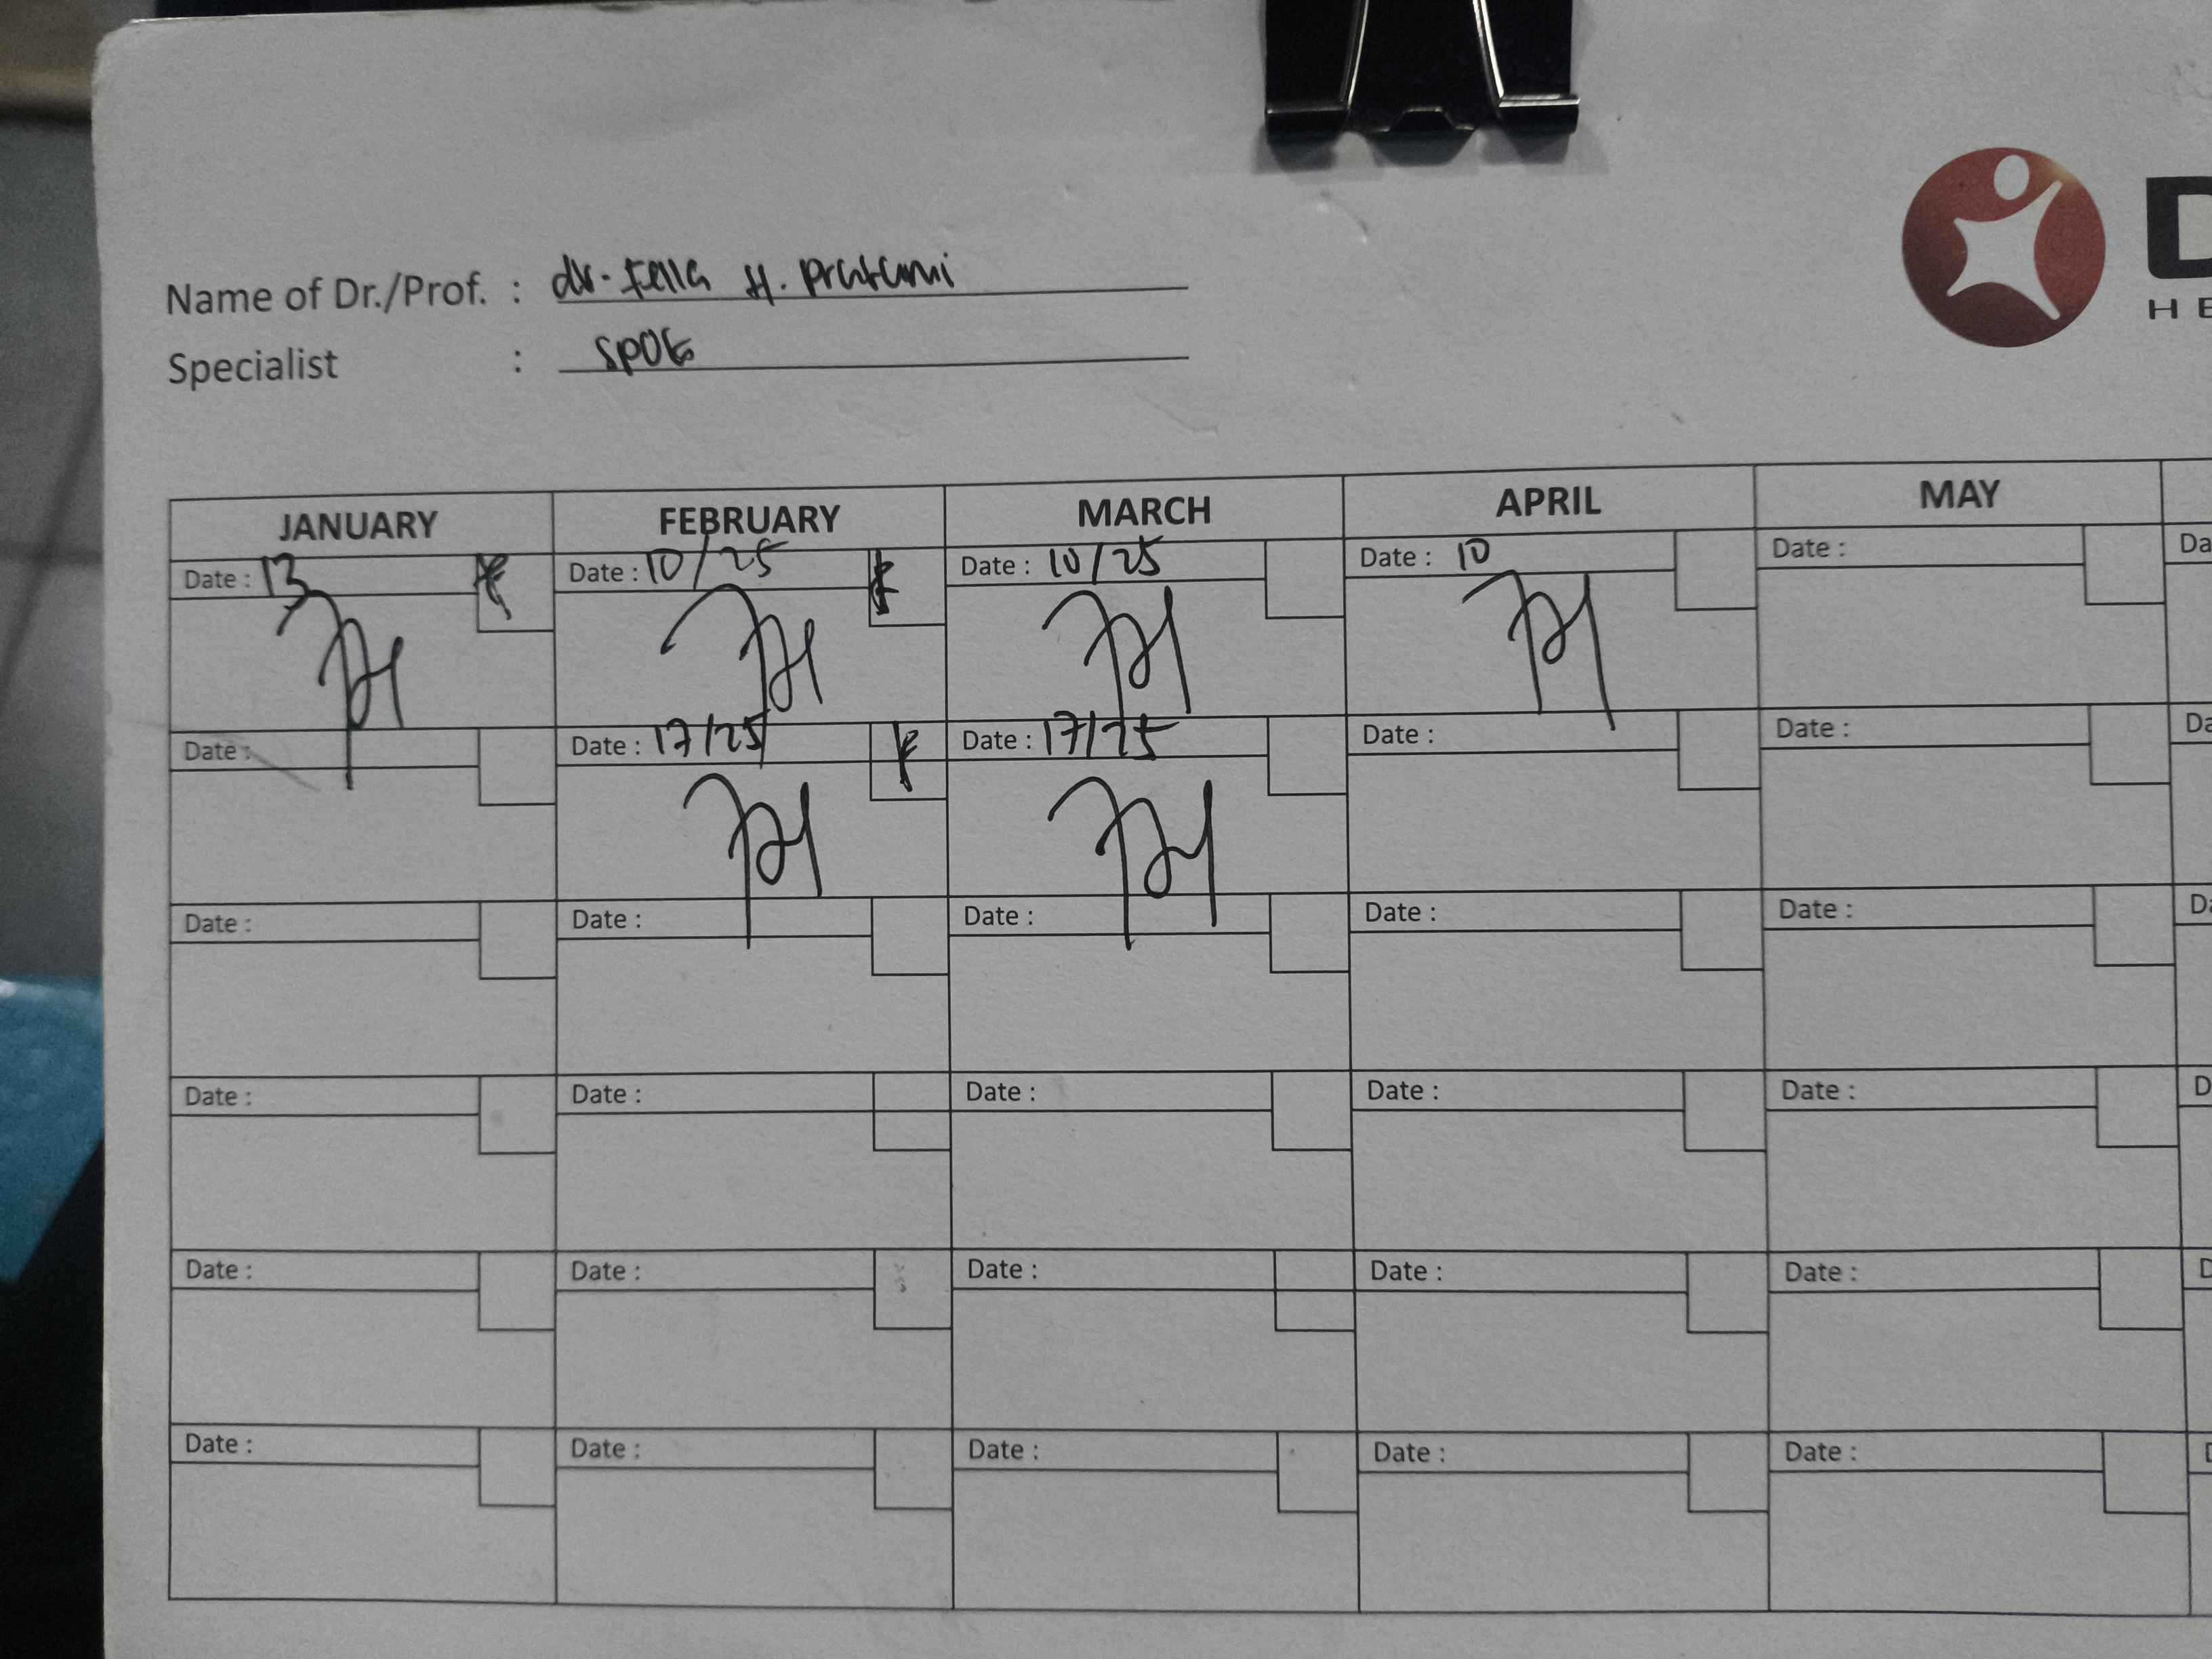 Name of Dr./Prof. : dr. Fella H. Pratami
Specialist : SpOG
D
HE
JANUARY FEBRUARY MARCH APRIL MAY
Date : 13 Date : 10/25 Date : 10/25 Date : 10 Date : Da
Date : Date : 17/25 Date : 17/25 Date : Date : Da
Date : Date : Date : Date : Date : Da
Date : Date : Date : Date : Date : D
Date : Date : Date : Date : Date : D
Date : Date : Date : Date : Date : D